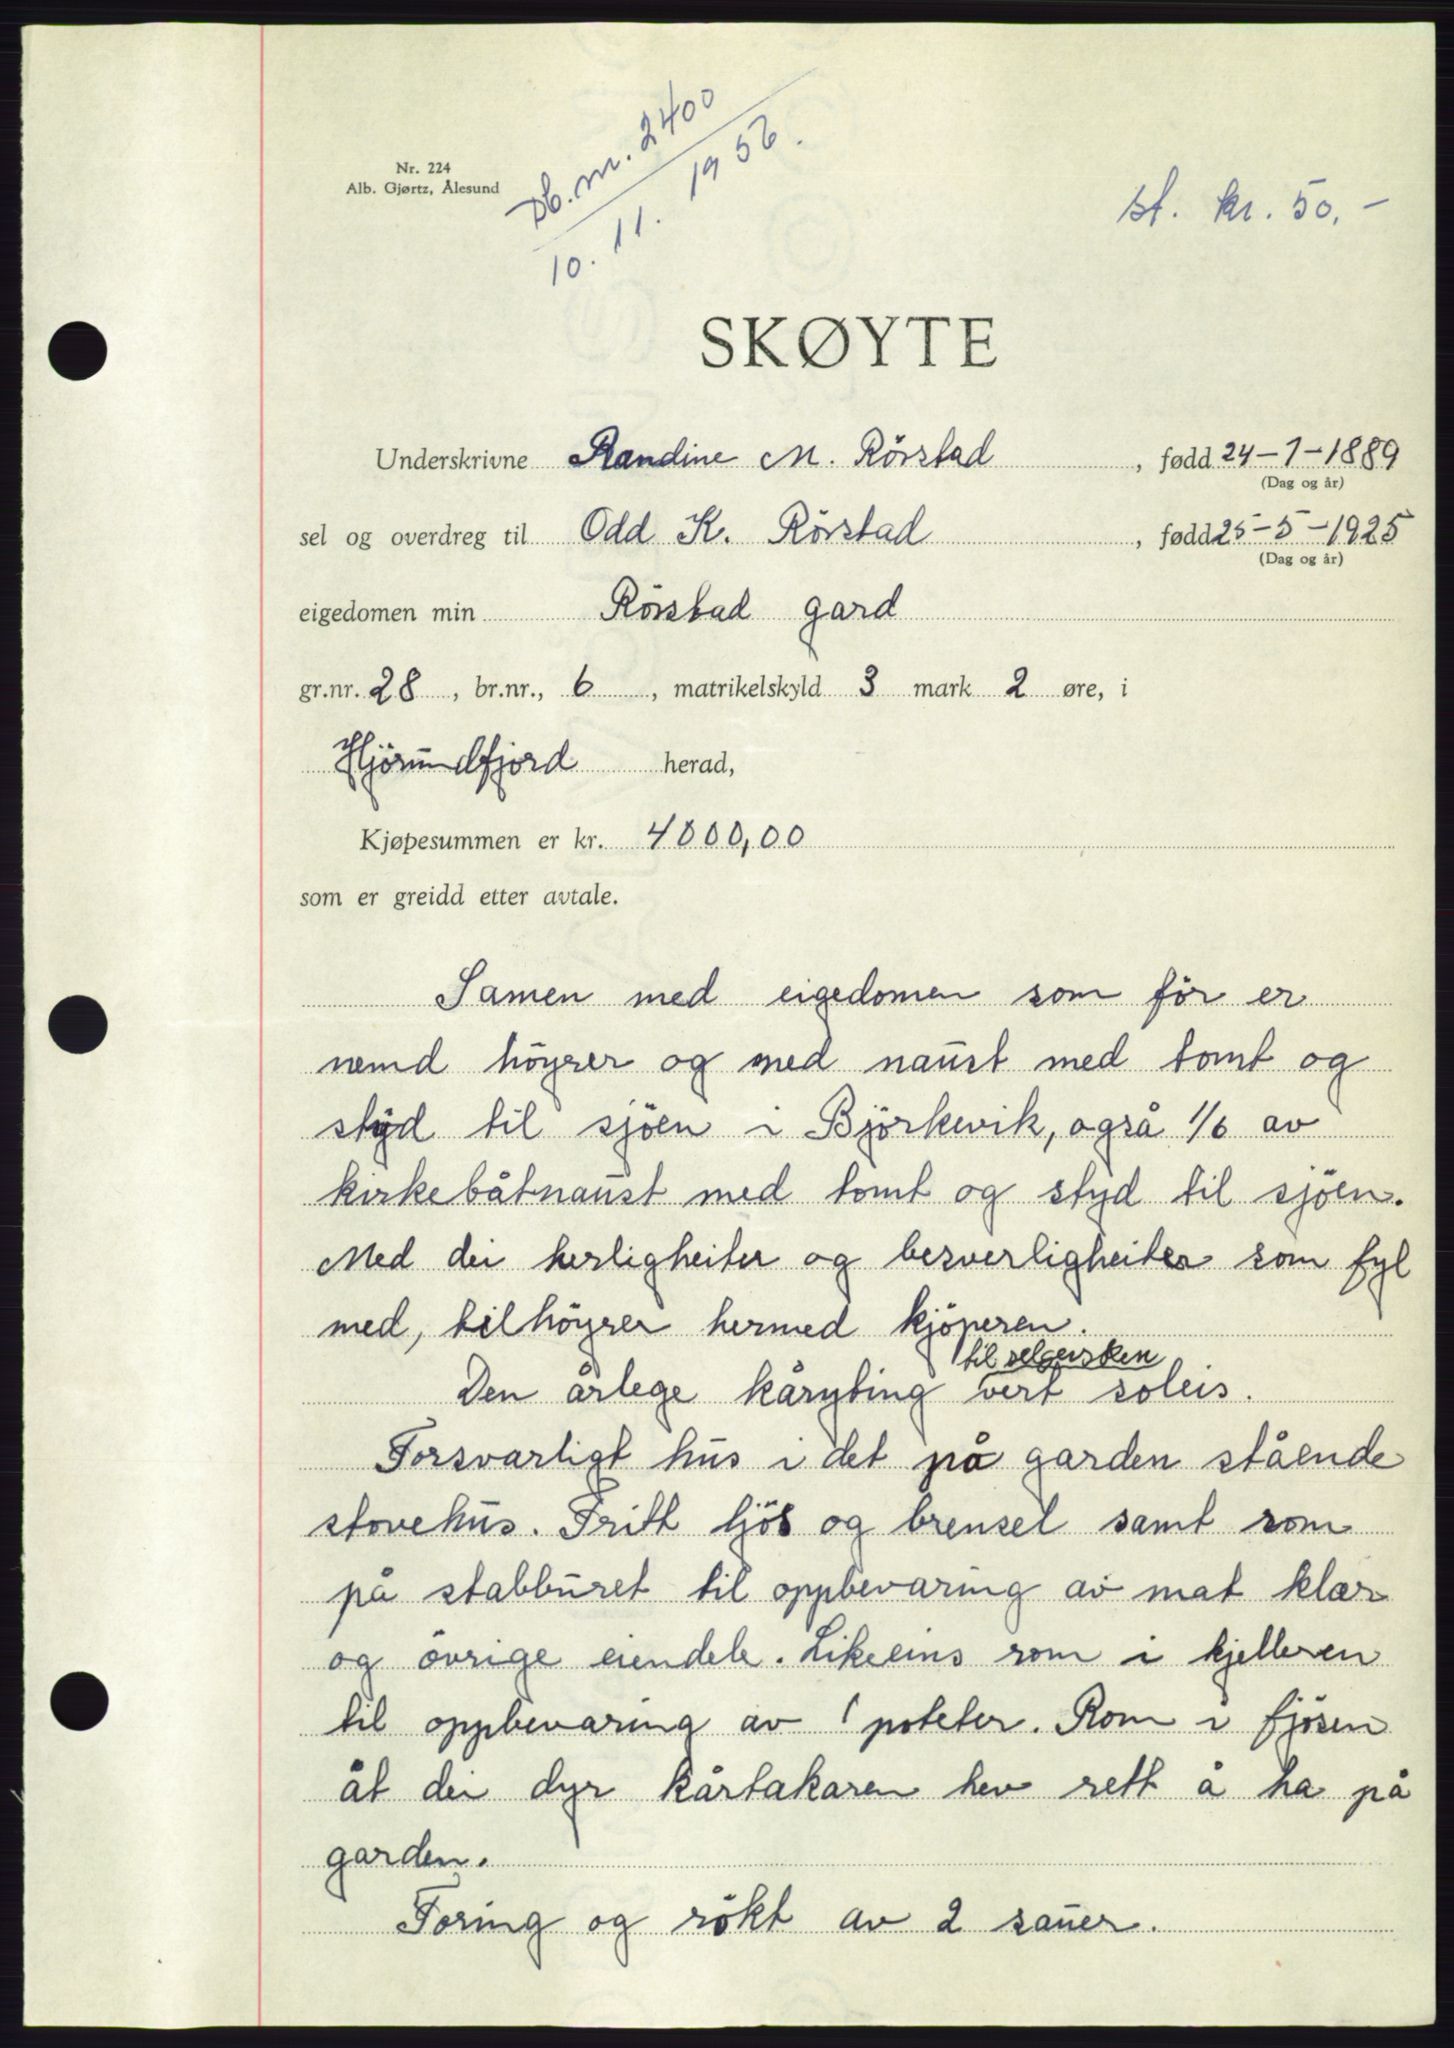 Db. nr. 2400
10. 11. 1956.
Nr. 224
Alb. Gjørtz, Ålesund
st. kr. 50.-
SKØYTE
Underskrivne Randine M. Rörstad, fødd 24-1-1889
(Dag og år)
sel og overdreg til Odd K. Rörstad, fødd 25-5-1925
(Dag og år)
eigedomen min Rörstad gard
gr.nr. 28, br.nr., 6, matrikelskyld 3 mark 2 øre, i
Hjörundfjord herad,
Kjøpesummen er kr. 4000,00
som er greidd etter avtale.
Samen med eigedomen som för er
nemd höyrer og med naust med tomt og
styd til sjöen i Björkevik, også 1/6 av
kirkebåtnaust med tomt og styd til sjöen.
Med dei herligheiter og besverligheiter som fyl
med, tilhöyrer hermed kjöperen.
til selgersken
Den årlege kåryting vert soleis.
Forsvarligt hus i det på garden stående
stovehus. Fritt ljös og brensel samt rom
på stabburet til oppbevaring av mat klær
og övrige eiendele. Likeeins rom i kjelleren
til oppbevaring av poteter. Rom i fjösen
åt dei dyr kårtakaren hev rett å ha på
garden.
Foring og rökt av 2 sauer.